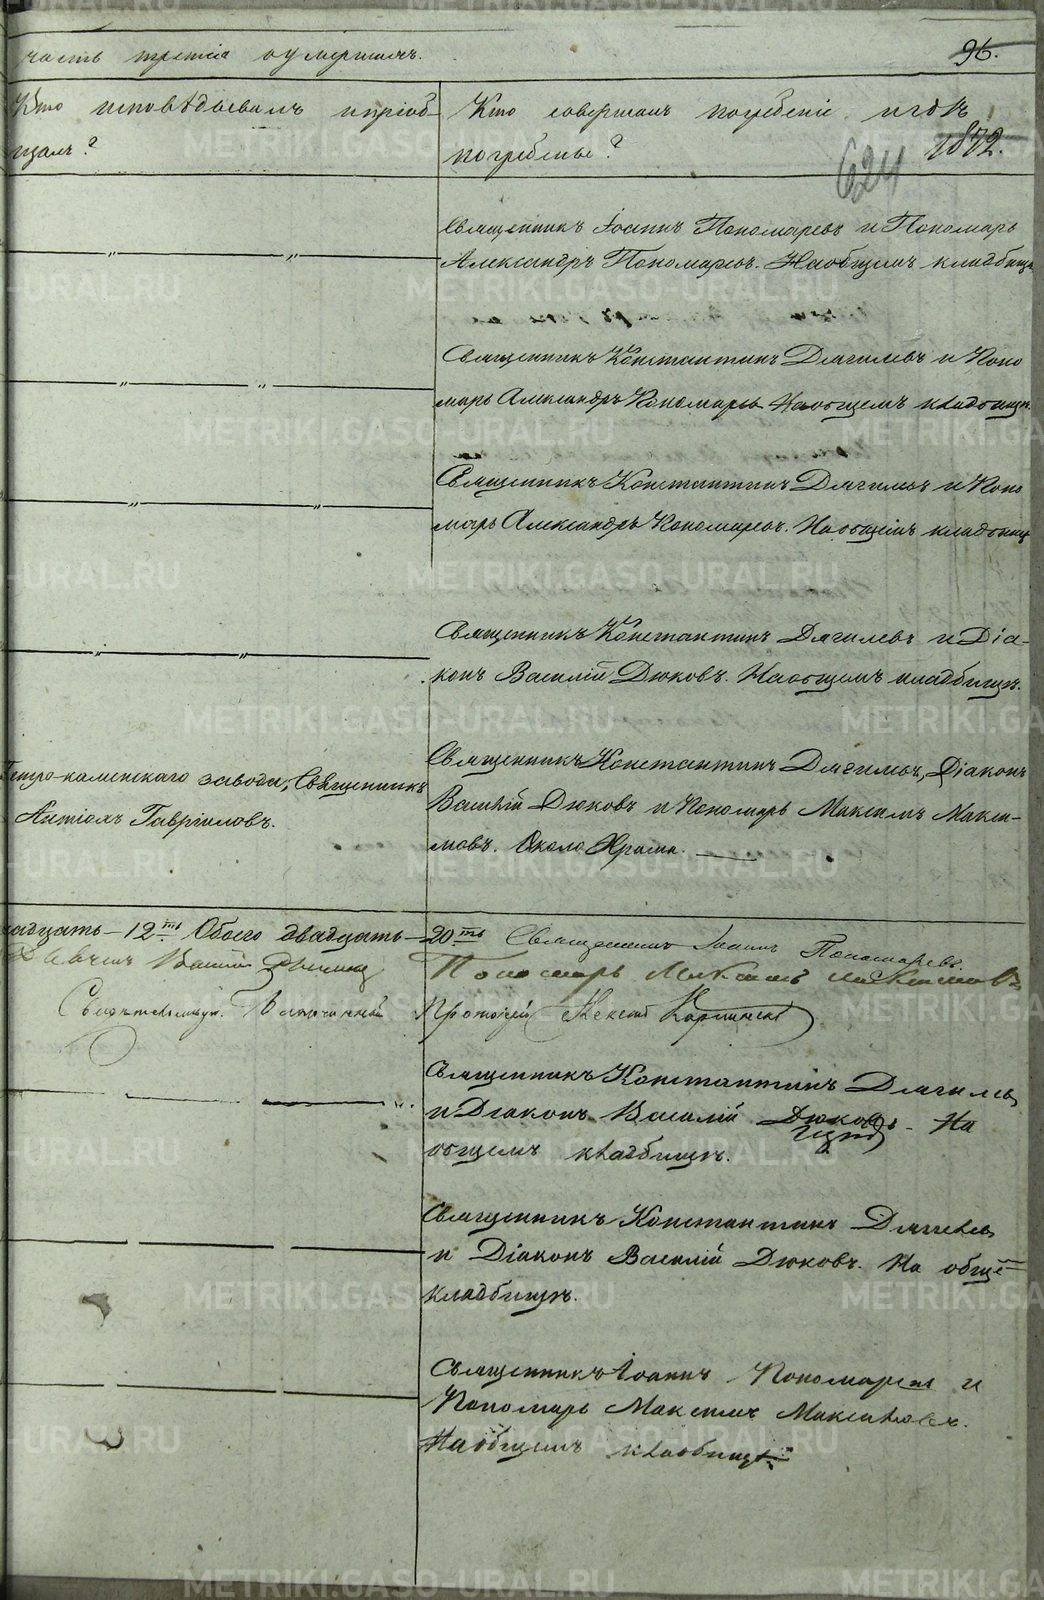 часть третія о умершихъ.
96.
Кто исповѣдывалъ и пріоб-
щалъ?
Кто совершалъ погребеніе и гдѣ
погребены?
1872.
624
Священникъ Іоаннъ Пономаревъ и Пономарь
Александръ Пономаревъ. На общемъ кладбищѣ
Священникъ Константинъ Дягилевъ и Поно
марь Александръ Пономаревъ. На общемъ кладбищѣ.
Священникъ Константинъ Дягилевъ и Поно
марь Александръ Пономаревъ. На общемъ кладбищѣ
Священникъ Константинъ Дягилевъ и Діа-
конъ Василій Дюковъ. На общемъ кладбищѣ.
Петро-каменскаго завода, Священникъ
Антіохъ Гавриловъ.
Священникъ Константинъ Дягилевъ, Діаконъ
Василій Дюковъ и Пономарь Максимъ Макси-
мовъ. Около Храма.
надцать – 12ть Обоего двадцать – 20ть Священникъ Іоаннъ Пономаревъ.
Пономарь Максимъ Максимовъ
Протоіерей Алексій
Священникъ Константинъ Дягилевъ
и Діаконъ Василій Дюковъ. На
общемъ кладбищѣ.
Священникъ Константинъ Дягилевъ
и Діаконъ Василій Дюковъ. На общё
кладбищѣ.
Священникъ Іоаннъ Пономаревъ и
Пономарь Максимъ Максимовъ.
На общемъ кладбищѣ.
METRIKI.GASO-URAL.RU